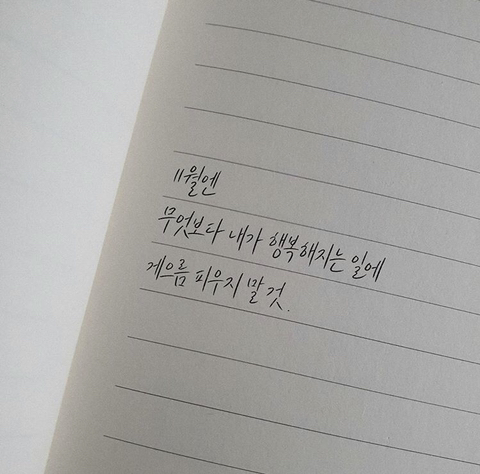 11월엔
무엇보다 내가 행복해지는 일에
게으름 피우지 말 것.